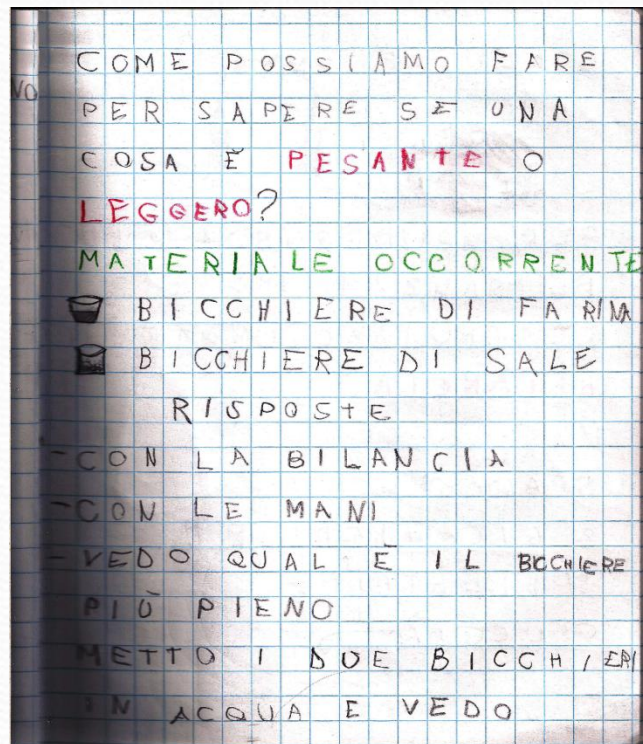 COME POSSIAMO FARE
PER SAPERE SE UNA
COSA È PESANTE O
LEGGERO?
MATERIALE OCCORRENTE
BICCHIERE DI FARINA
BICCHIERE DI SALE
RISPOSTE
-CON LA BILANCIA
-CON LE MANI
-VEDO QUAL È IL BICCHIERE
PIÙ PIENO
METTO I DUE BICCHIERI
IN ACQUA E VEDO